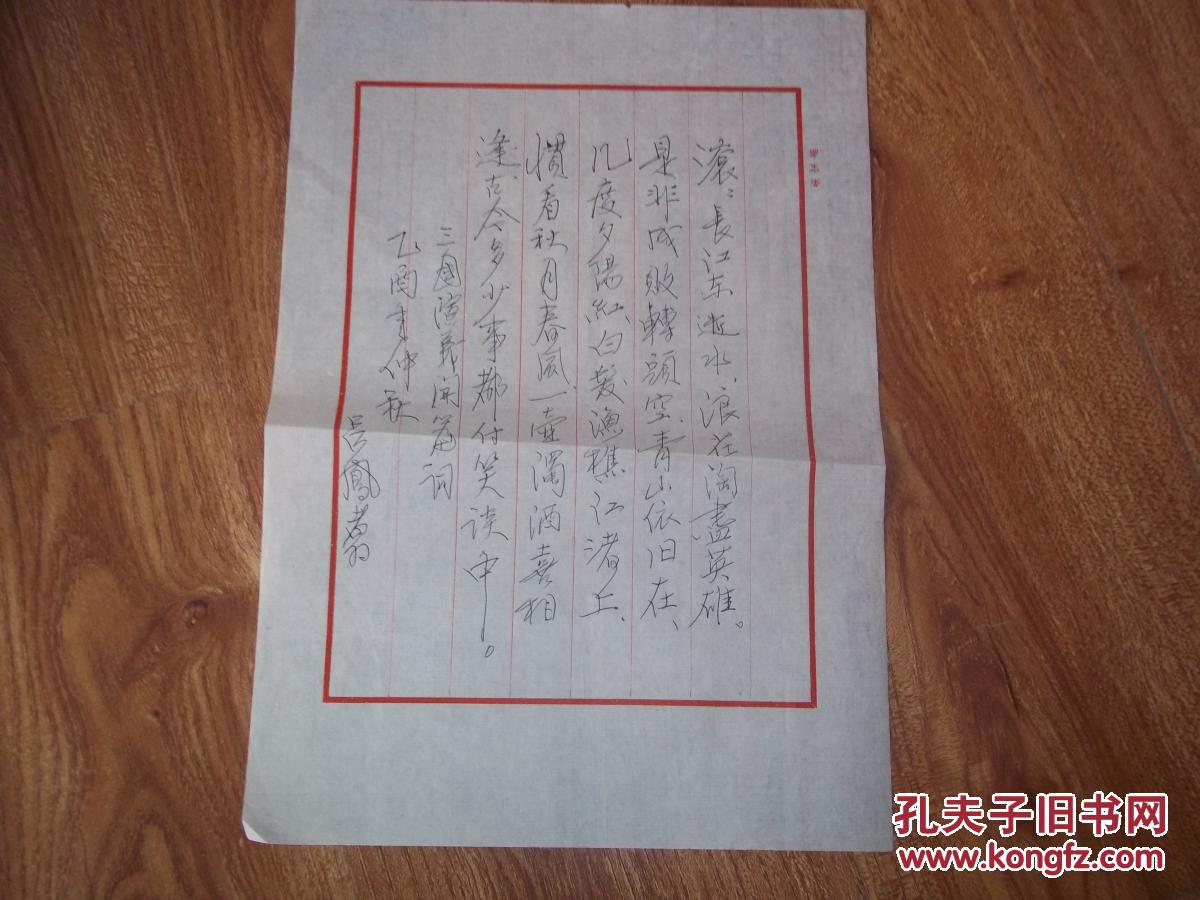 滾〻長江东逝水、浪花淘盡英雄。
是非成敗轉頭空、青山依旧在、
几度夕陽紅、白发漁樵江渚上、
慣看秋月春風、一壶濁酒喜相
逢、古今多少事都付笑谈中。
三國演義開篇词
乙酉年仲秋
吕鳳翥
孔夫子旧书网
www.kongfz.com